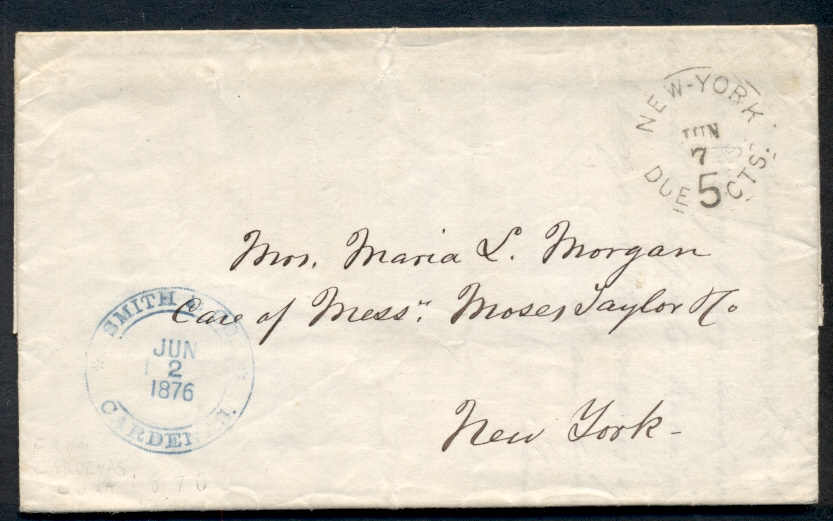 NEW-YORK
JUN
7
DUE 5 CTS.
Mrs. Maria L. Morgan
Care of Messrs. Moses Taylor & Co
New York-
SMITH & CO
JUN
2
1876
CARDENAS.
FROM
CARDENAS
CUBA 1876